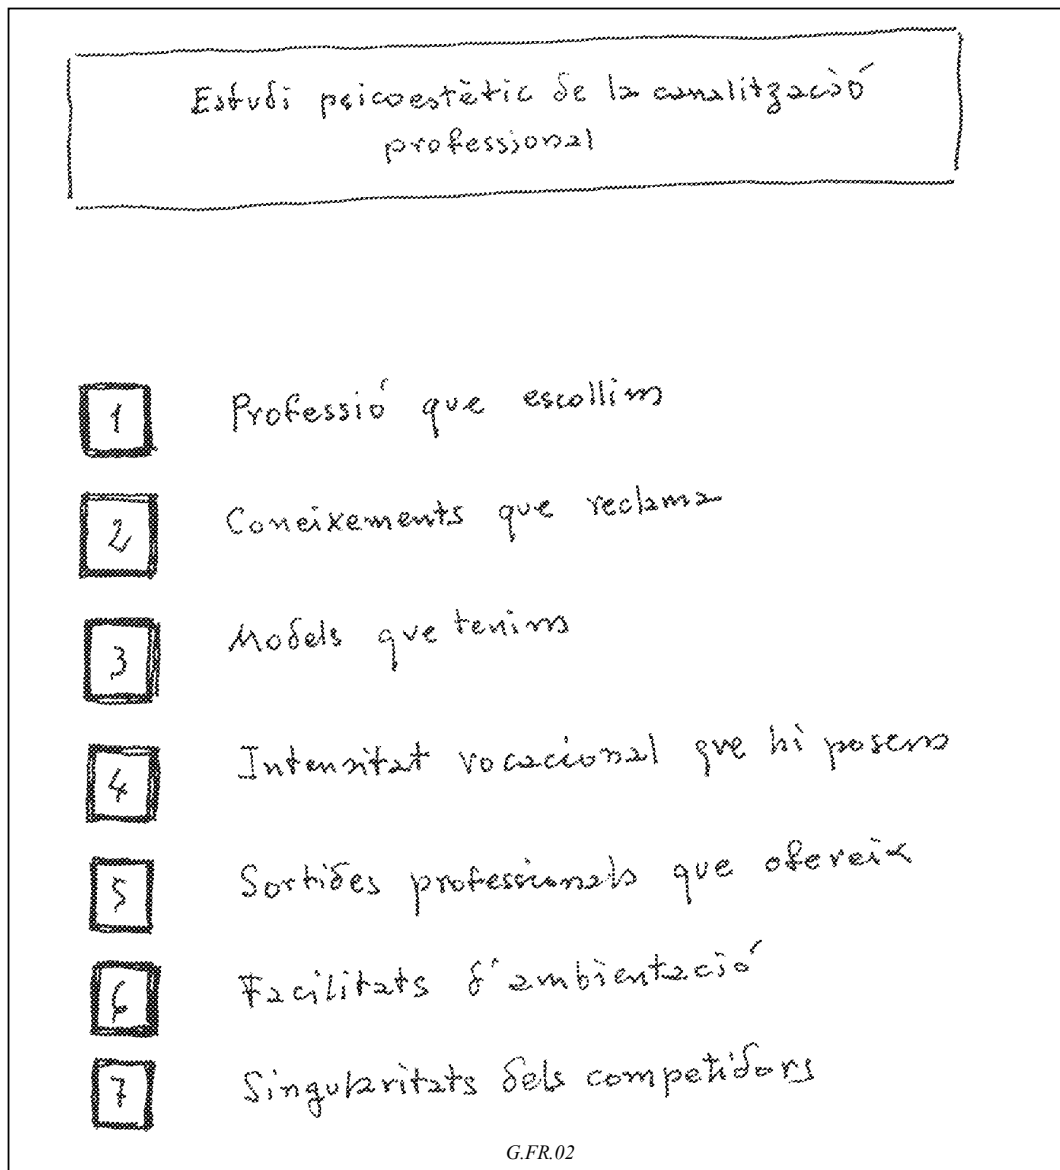 Estudi psicoestètic de la canalització
professional
1 Professió que escollim
2 Coneixements que reclama
3 Models que tenim
4 Intensitat vocacional que hi posem
5 Sortides professionals que ofereix
6 Facilitats d'ambientació
7 Singularitats dels competidors
G.FR.02